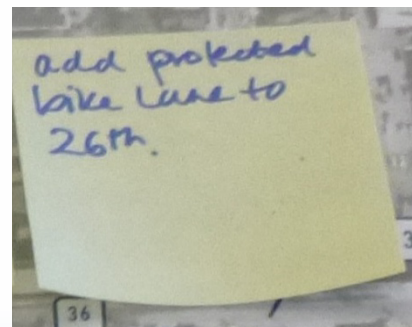 add protected
bike lane to
26th.
36
3